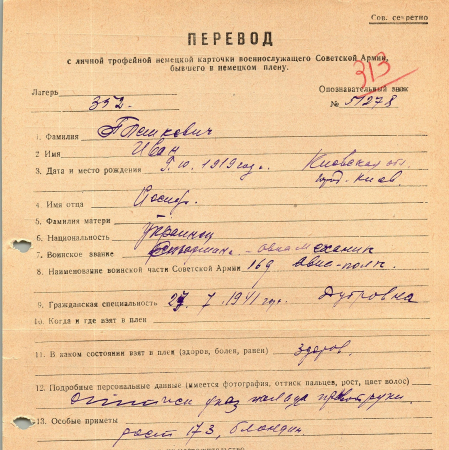 Сов. секретно
ПЕРЕВОД
с личной трофейной немецкой карточки военнослужащего Советской Армии,
бывшего в немецком плену.
313
Лагерь 352. Опознавательный знак
№ 51278
1. Фамилия
2 Имя Иван
3. Дата и место рождения 9.10.1919 года. Киевская обл.
гор. Киев
4. Имя отца Иосиф.
5. Фамилия матери
6. Национальность украинец
7. Воинское звание авиамеханик
8. Наименование воинской части Советской Армии 169 авиа-полк.
9. Гражданская специальность
27.7.1941 года. Дубровка
10. Когда и где взят в плен
11. В каком состоянии взят в плен (здоров, болен, ранен) здоров.
12. Подробные персональные данные (имеется фотография, оттиск пальцев, рост, цвет волос)
оттиск указ пальца пр. руки.
13. Особые приметы
рост 173, блондин